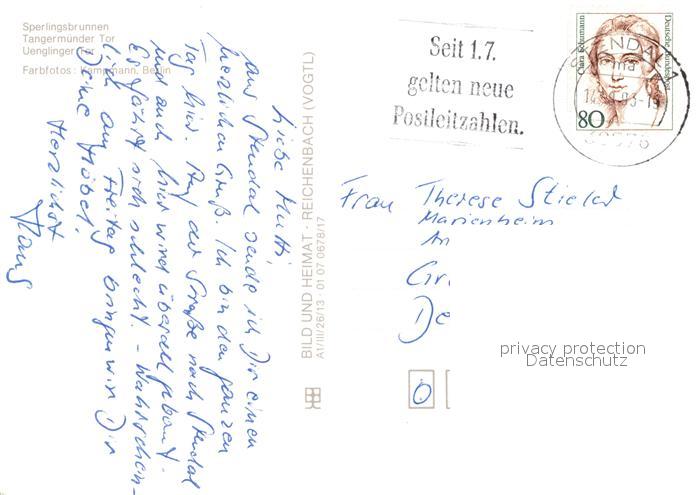 Sperlingsbrunnen
Tangermünder Tor
Uenglinger Tor
Farbfotos: Kampmann, Berlin
Liebe Mutti
Aus Stendal sende ich Dir einen
herzlichen Gruß. Ich bin den ganzen
Tag hier. Auf der Straße nach Stendal
und auch hier wird überall gebaut.
Es fährt sich schlecht. - Wahrschein-
lich am Freitag bringen wir Dir
Deine Möbel.
Herzlichst
Hans
BILD UND HEIMAT · REICHENBACH (VOGTL)
A1/III/26/13 01 07 0678/17
Seit 1.7.
gelten neue
Postleitzahlen.
STENDAL
Clara Schumann
Deutsche Bundespost
80
Frau Therese Stieler
Marienheim
An
Gr.
De
0
privacy protection
Datenschutz